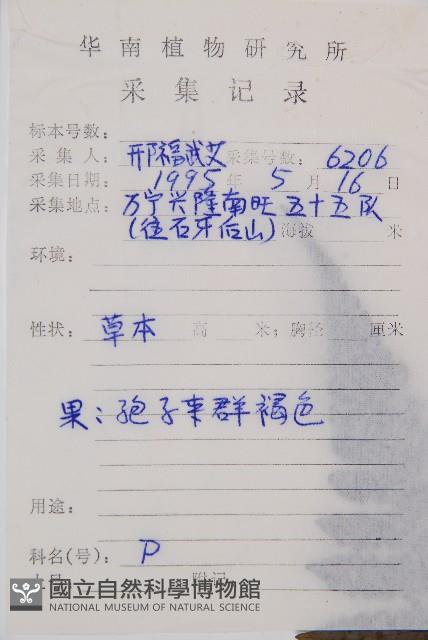 华南植物研究所
采集记录
标本号数：
采集人： 邢福武 采集号数： 6206
采集日期： 1995 年 5 月 16 日
采集地点： 万宁兴隆南旺五十五队
(往石牙后山) 海拔 米
环境：
性状： 草本 高 米；胸径 厘米
果：孢子束群褐色
用途：
科名(号)： P
附记
國立自然科學博物館
NATIONAL MUSEUM OF NATURAL SCIENCE